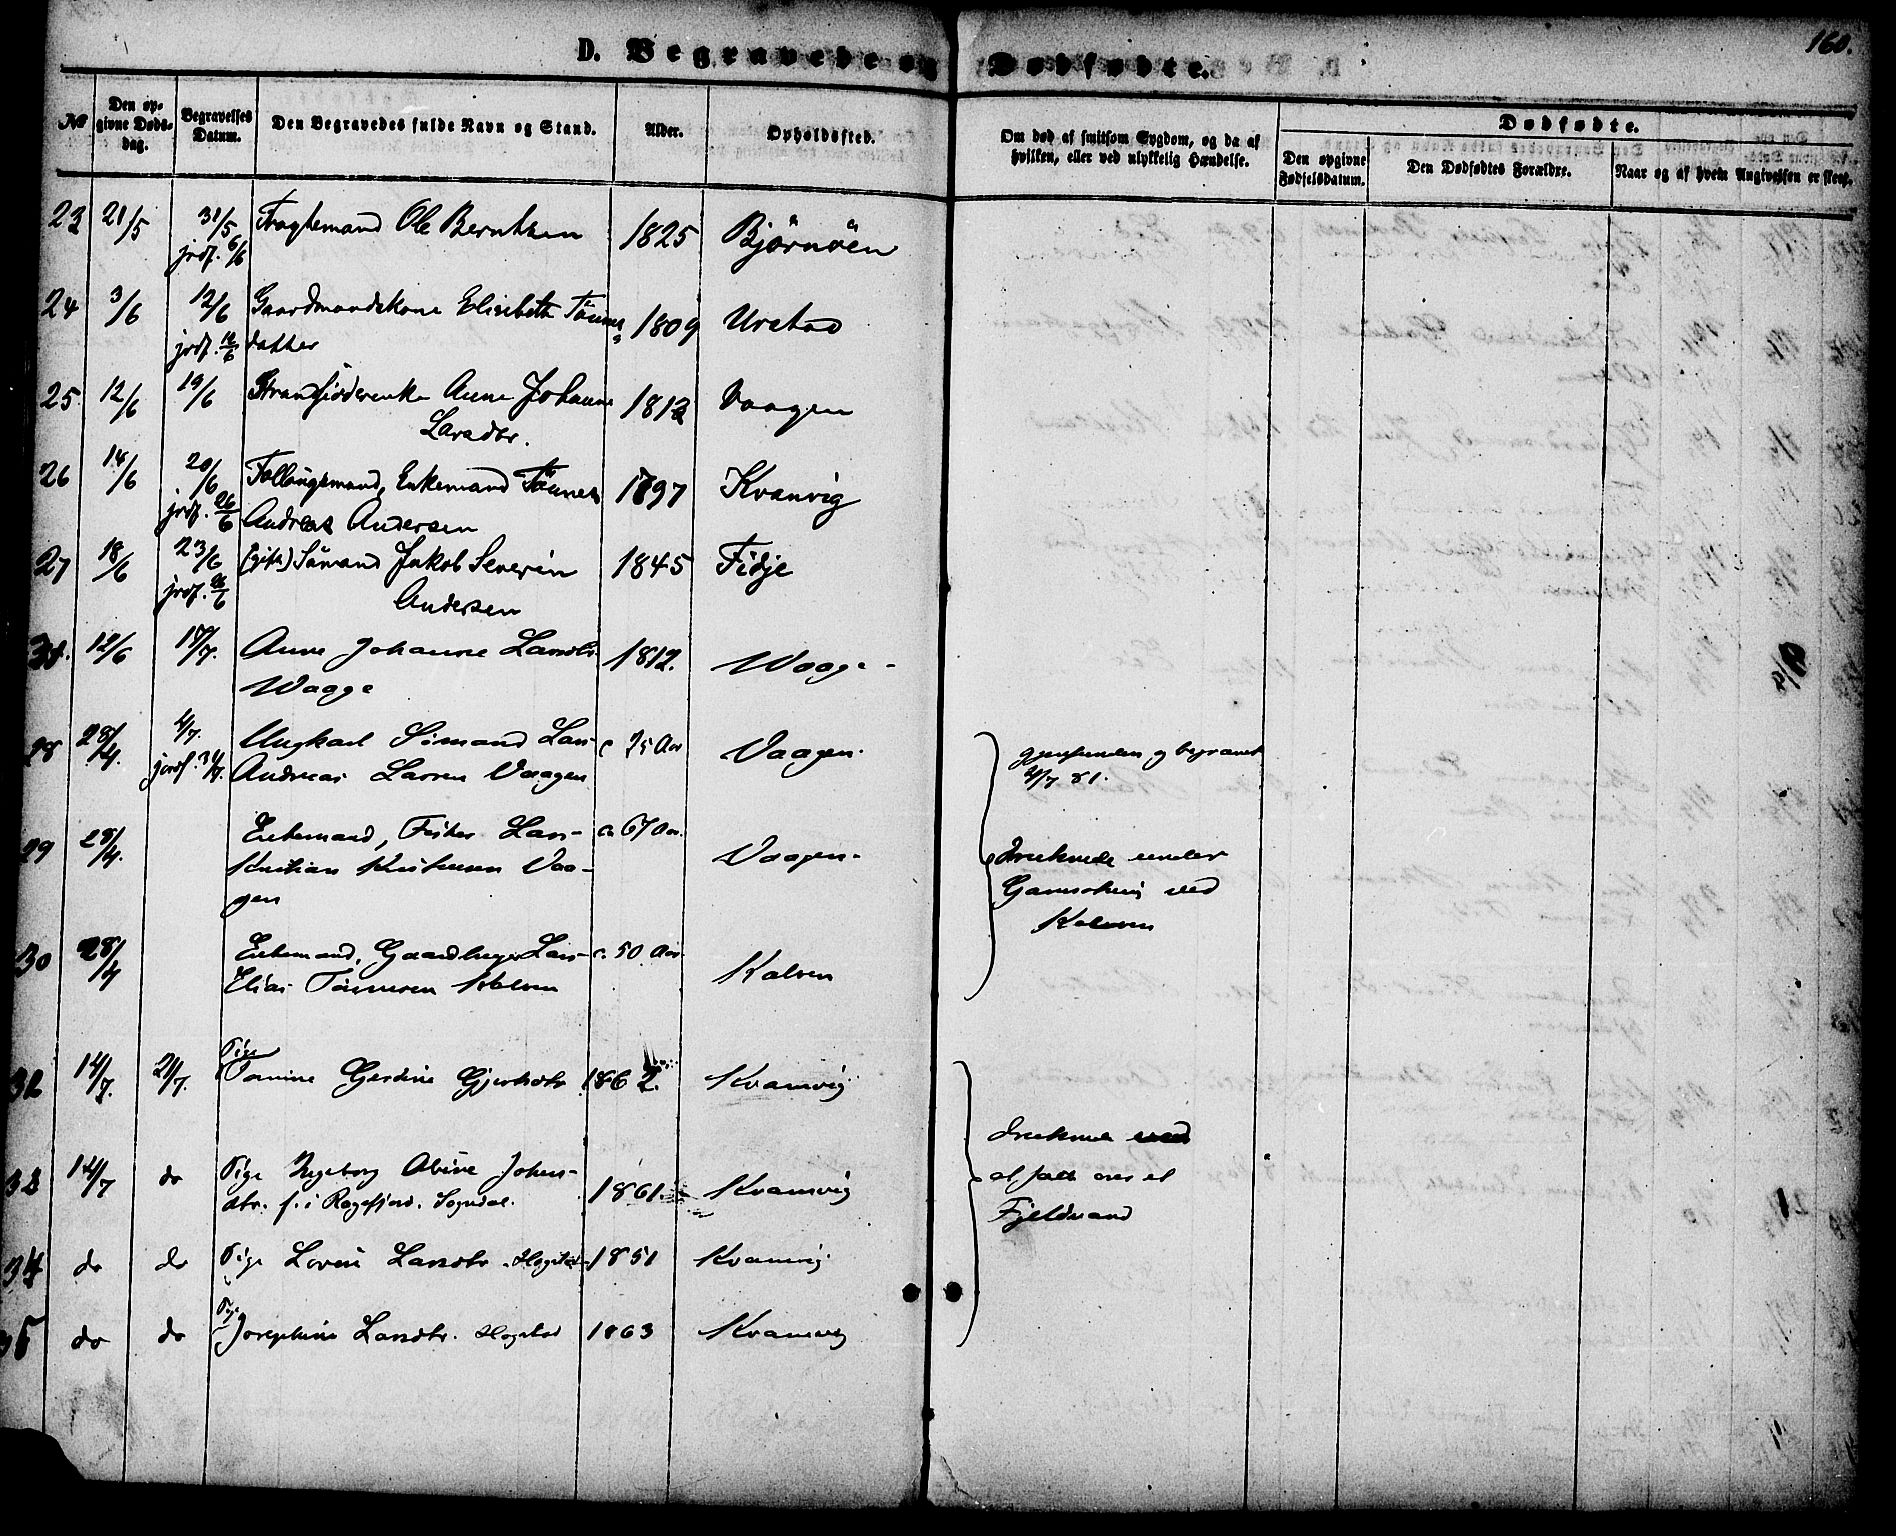 160.
D. Begravede og Dødfødte.
No
Den opgivne Dødsdag.
Begravelses Datum.
Den Begravedes fulde Navn og Stand.
Alder.
Opholdssted.
Om død af smitsom Sygdom, og da af hvilken, eller ved ulykkelig Hændelse.
Dødfødte.
Den opgivne Fødselsdatum.
Den Dødfødtes Forældre.
Naar og af hvem Angivelsen er skeet.
23 21/5 31/5 Ole Berntsen 1825 Bjørnøen
jrdf. 6/6
24 3/6 12/6 Gaardmandskone Elisabeth Tønnes 1809 Urstad
jrdf. 16/6 datter
25 12/6 19/6 Anne Johanne 1812 Vaagen
Larsdtr.
26 14/6 20/6 Enkemand Tønnes 1797 Kvanvig
jrdf. 26/6 Andreas Andersen
27 18/6 23/6 (gift) Sømand Jakob Severin 1845 Fidje
jrdf. 26/6 Andersen
31. 12/6 17/7. Anne Johanne Larsdtr. 1812. Waage
Waage
28 28/4. 4/7. Ungkarl Sømand Lars 25 Aar Vaagen. gjenfunden og begravet
jordf. Andreas Larsen Vaagen 4/7 81.
29 28/4. Enkemand, Fisker Lars c. 67 Aar. Vaagen. druknede under
Kristian Kristensen Vaa- ved
gen Kalven
30 28/4 Enkemand, Gaardbruger Lars c. 50 Aar Kalven
Elias Tønnesen Kalven
32 14/7 21/7. Pige
Tomine Gjertsdtr. 1862. Kvanvig
druknede ved
33 14/7 do Pige Ingeborg Johns- 1861. Kvanvig at falde over et
dtr. f. i Rægefjord. Sogndal. Fjeldvand
34 do do Pige Larsdtr. 1851 Kvanvig
35 do do Pige
Josephine Larsdtr. 1863 Kvanvig